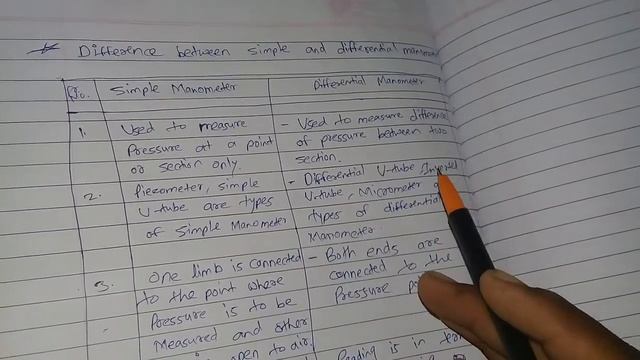 * Difference between simple and differential
Sr. No. Simple Manometer Differential Manometer
1. Used to measure
Pressure at a point
or section only.
- Used to measure difference
of pressure between two
section.
2. Piezometer, simple
U-tube are types
of simple Manometer
- Differential U-tube, Inverted
U-tube, Micrometer
types of differential
Manometer.
3. One limb is connected
to the point where
Pressure is to be
Measured and other
open to air.
- Both ends are
connected to the
Pressure
Reading is in